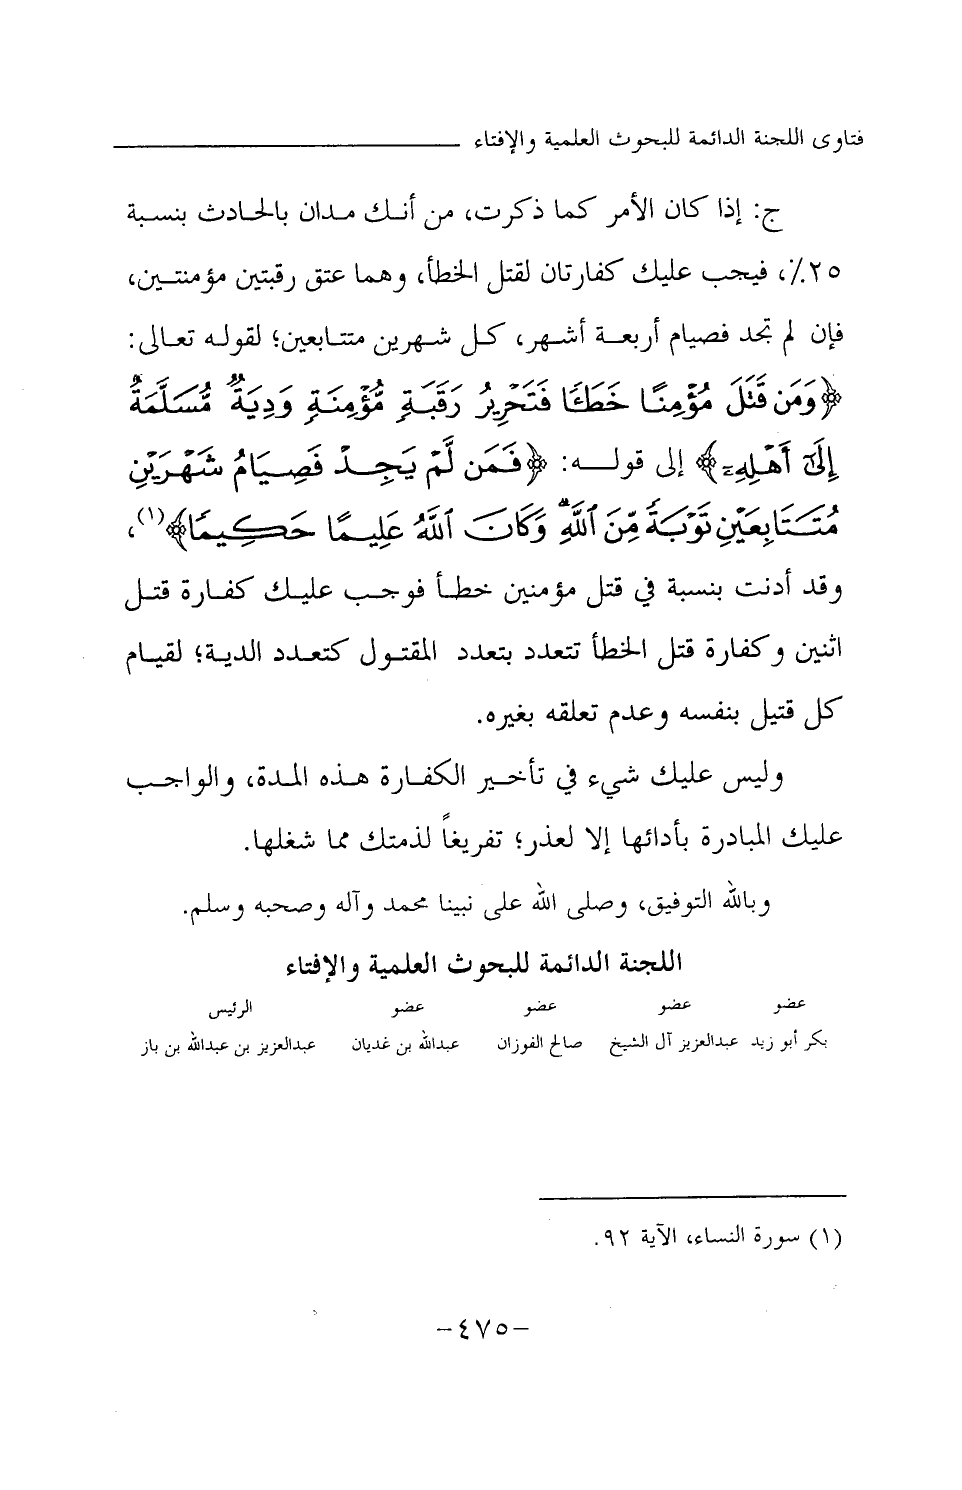 فتاوى اللجنة الدائمة للبحوث العلمية والإفتاء
ج: إذا كان الأمر كما ذكرت، من أنك مدان بالحادث بنسبة
٢٥٪، فيجب عليك كفارتان لقتل الخطأ، وهما عتق رقبتين مؤمنتين،
فإن لم تجد فصيام أربعة أشهر، كل شهرين متتابعين؛ لقوله تعالى:
﴿وَمَن قَتَلَ مُؤْمِنًا خَطَـًٔا فَتَحْرِيرُ رَقَبَةٍ مُّؤْمِنَةٍ وَدِيَةٌ مُّسَلَّمَةٌ
إِلَىٰٓ أَهْلِهِۦٓ﴾ إلى قوله: ﴿فَمَن لَّمْ يَجِدْ فَصِيَامُ شَهْرَيْنِ
مُتَتَابِعَيْنِ تَوْبَةً مِّنَ ٱللَّهِۗ وَكَانَ ٱللَّهُ عَلِيمًا حَكِيمًا﴾(١)،
وقد أدنت بنسبة في قتل مؤمنين خطأ فوجب عليك كفارة قتل
اثنين وكفارة قتل الخطأ تتعدد بتعدد المقتول كتعدد الدية؛ لقيام
كل قتيل بنفسه وعدم تعلقه بغيره.
وليس عليك شيء في تأخير الكفارة هذه المدة، والواجب
عليك المبادرة بأدائها إلا لعذر؛ تفريغاً لذمتك مما شغلها.
وبالله التوفيق، وصلى الله على نبينا محمد وآله وصحبه وسلم.
اللجنة الدائمة للبحوث العلمية والإفتاء
عضو عضو عضو عضو الرئيس
بكر أبو زيد عبدالعزيز آل الشيخ صالح الفوزان عبدالله بن غديان عبدالعزيز بن عبدالله بن باز
(١) سورة النساء، الآية ٩٢.
-٤٧٥-